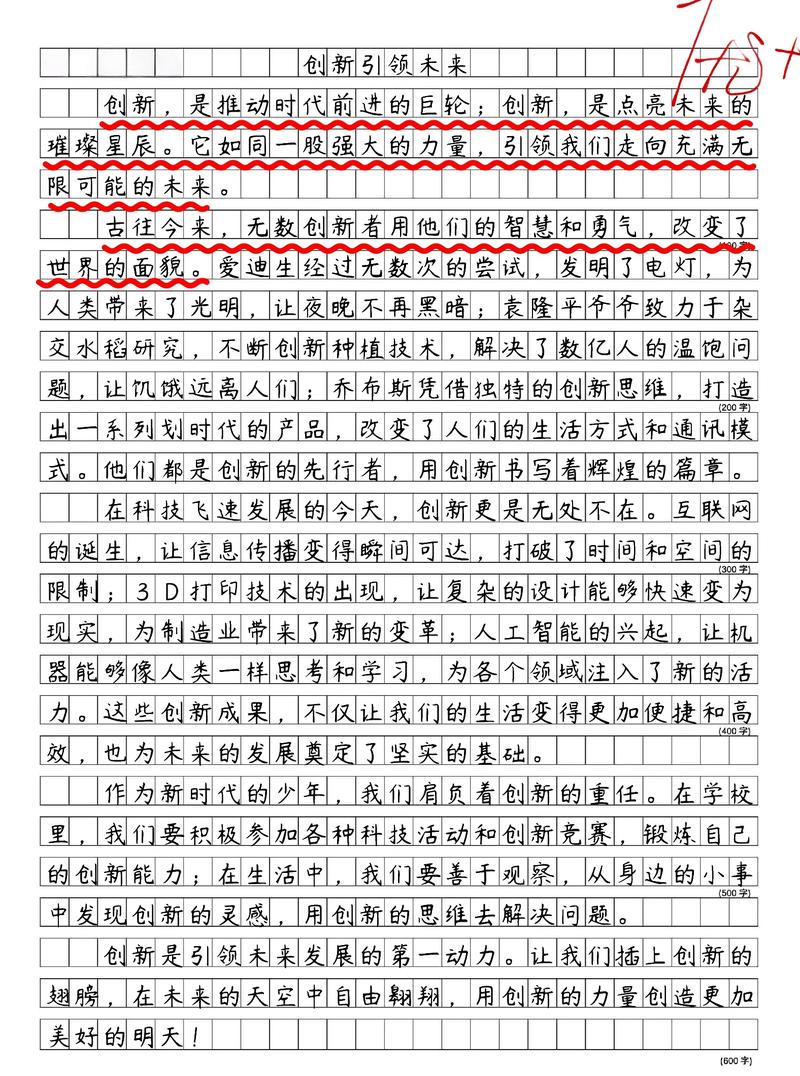 创新引领未来
创新，是推动时代前进的巨轮；创新，是点亮未来的
璀璨星辰。它如同一股强大的力量，引领我们走向充满无
限可能的未来。
古往今来，无数创新者用他们的智慧和勇气，改变了
世界的面貌。爱迪生经过无数次的尝试，发明了电灯，为
人类带来了光明，让夜晚不再黑暗；袁隆平爷爷致力于杂
交水稻研究，不断创新种植技术，解决了数亿人的温饱问
题，让饥饿远离人们；乔布斯凭借独特的创新思维，打造
(200字)
出一系列划时代的产品，改变了人们的生活方式和通讯模
式。他们都是创新的先行者，用创新书写着辉煌的篇章。
在科技飞速发展的今天，创新更是无处不在。互联网
的诞生，让信息传播变得瞬间可达，打破了时间和空间的
(300字)
限制；3D打印技术的出现，让复杂的设计能够快速变为
现实，为制造业带来了新的变革；人工智能的兴起，让机
器能够像人类一样思考和学习，为各个领域注入了新的活
力。这些创新成果，不仅让我们的生活变得更加便捷和高
(400字)
效，也为未来的发展奠定了坚实的基础。
作为新时代的少年，我们肩负着创新的重任。在学校
里，我们要积极参加各种科技活动和创新竞赛，锻炼自己
的创新能力；在生活中，我们要善于观察，从身边的小事
(500字)
中发现创新的灵感，用创新的思维去解决问题。
创新是引领未来发展的第一动力。让我们插上创新的
翅膀，在未来的天空中自由翱翔，用创新的力量创造更加
美好的明天！
(600字)